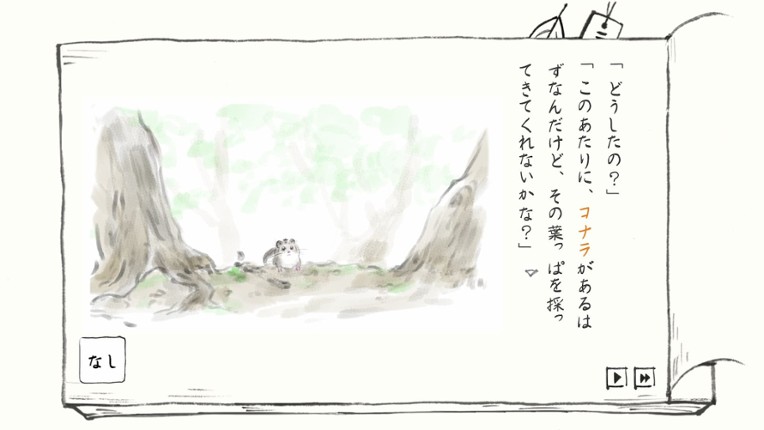 「どうしたの？」
「このあたりに、コナラがあるは
ずなんだけど、その葉っぱを採っ
てきてくれないかな？」
なし